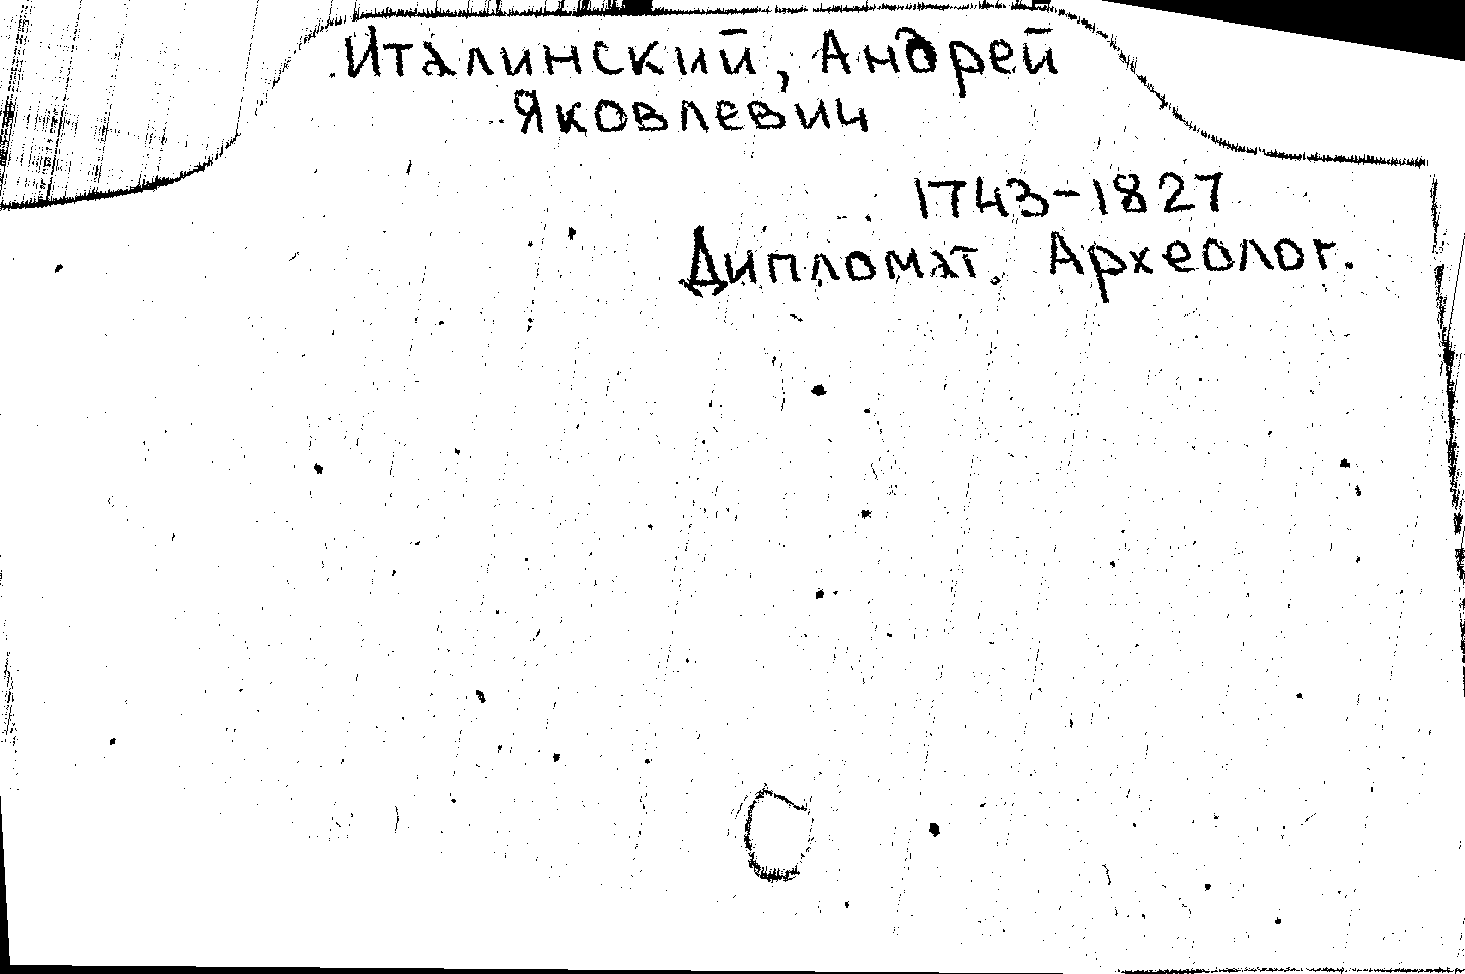 Италинский, Андрей
Яковлевич
1743-1827
Дипломат. Археолог.